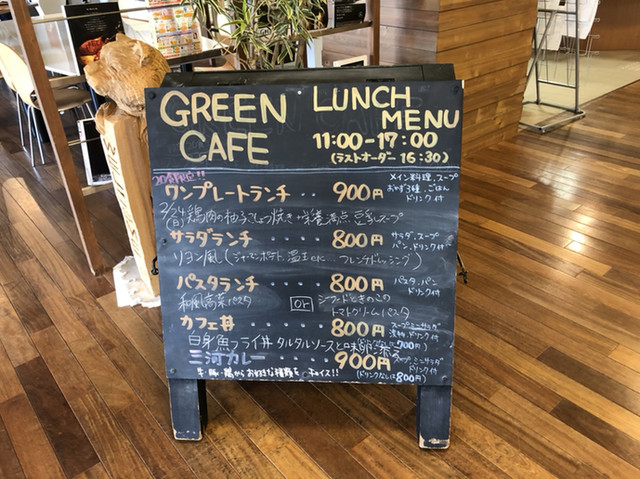 GREEN CAFE
LUNCH MENU
11:00-17:00
(ラストオーダー 16:30)
20食限定!!
ワンプレートランチ ‥ 900円
メイン料理、スープ
おかず3種、ごはん
ドリンク付
2/24(日)鶏肉の柚子こしょう焼き 栄養満点 豆乳スープ
サラダランチ ‥‥ 800円
サラダ、スープ
パン、ドリンク付
リヨン風(ジャーマンポテト、温玉etc... フレンチドレッシング)
パスタランチ ‥‥ 800円
パスタ、パン
ドリンク付
和風高菜パスタ or シーフードときのこの
トマトクリームパスタ
カフェ丼 ‥‥ 800円
スープ、ミニサラダ
漬物、ドリンク付
700円)
白身魚フライ丼 タルタルソースと
三河カレー ‥‥ 900円
スープ、ミニサラダ
ドリンク付
(ドリンクなしは800円)
牛・豚・鶏からお好きな種類を チョイス!!